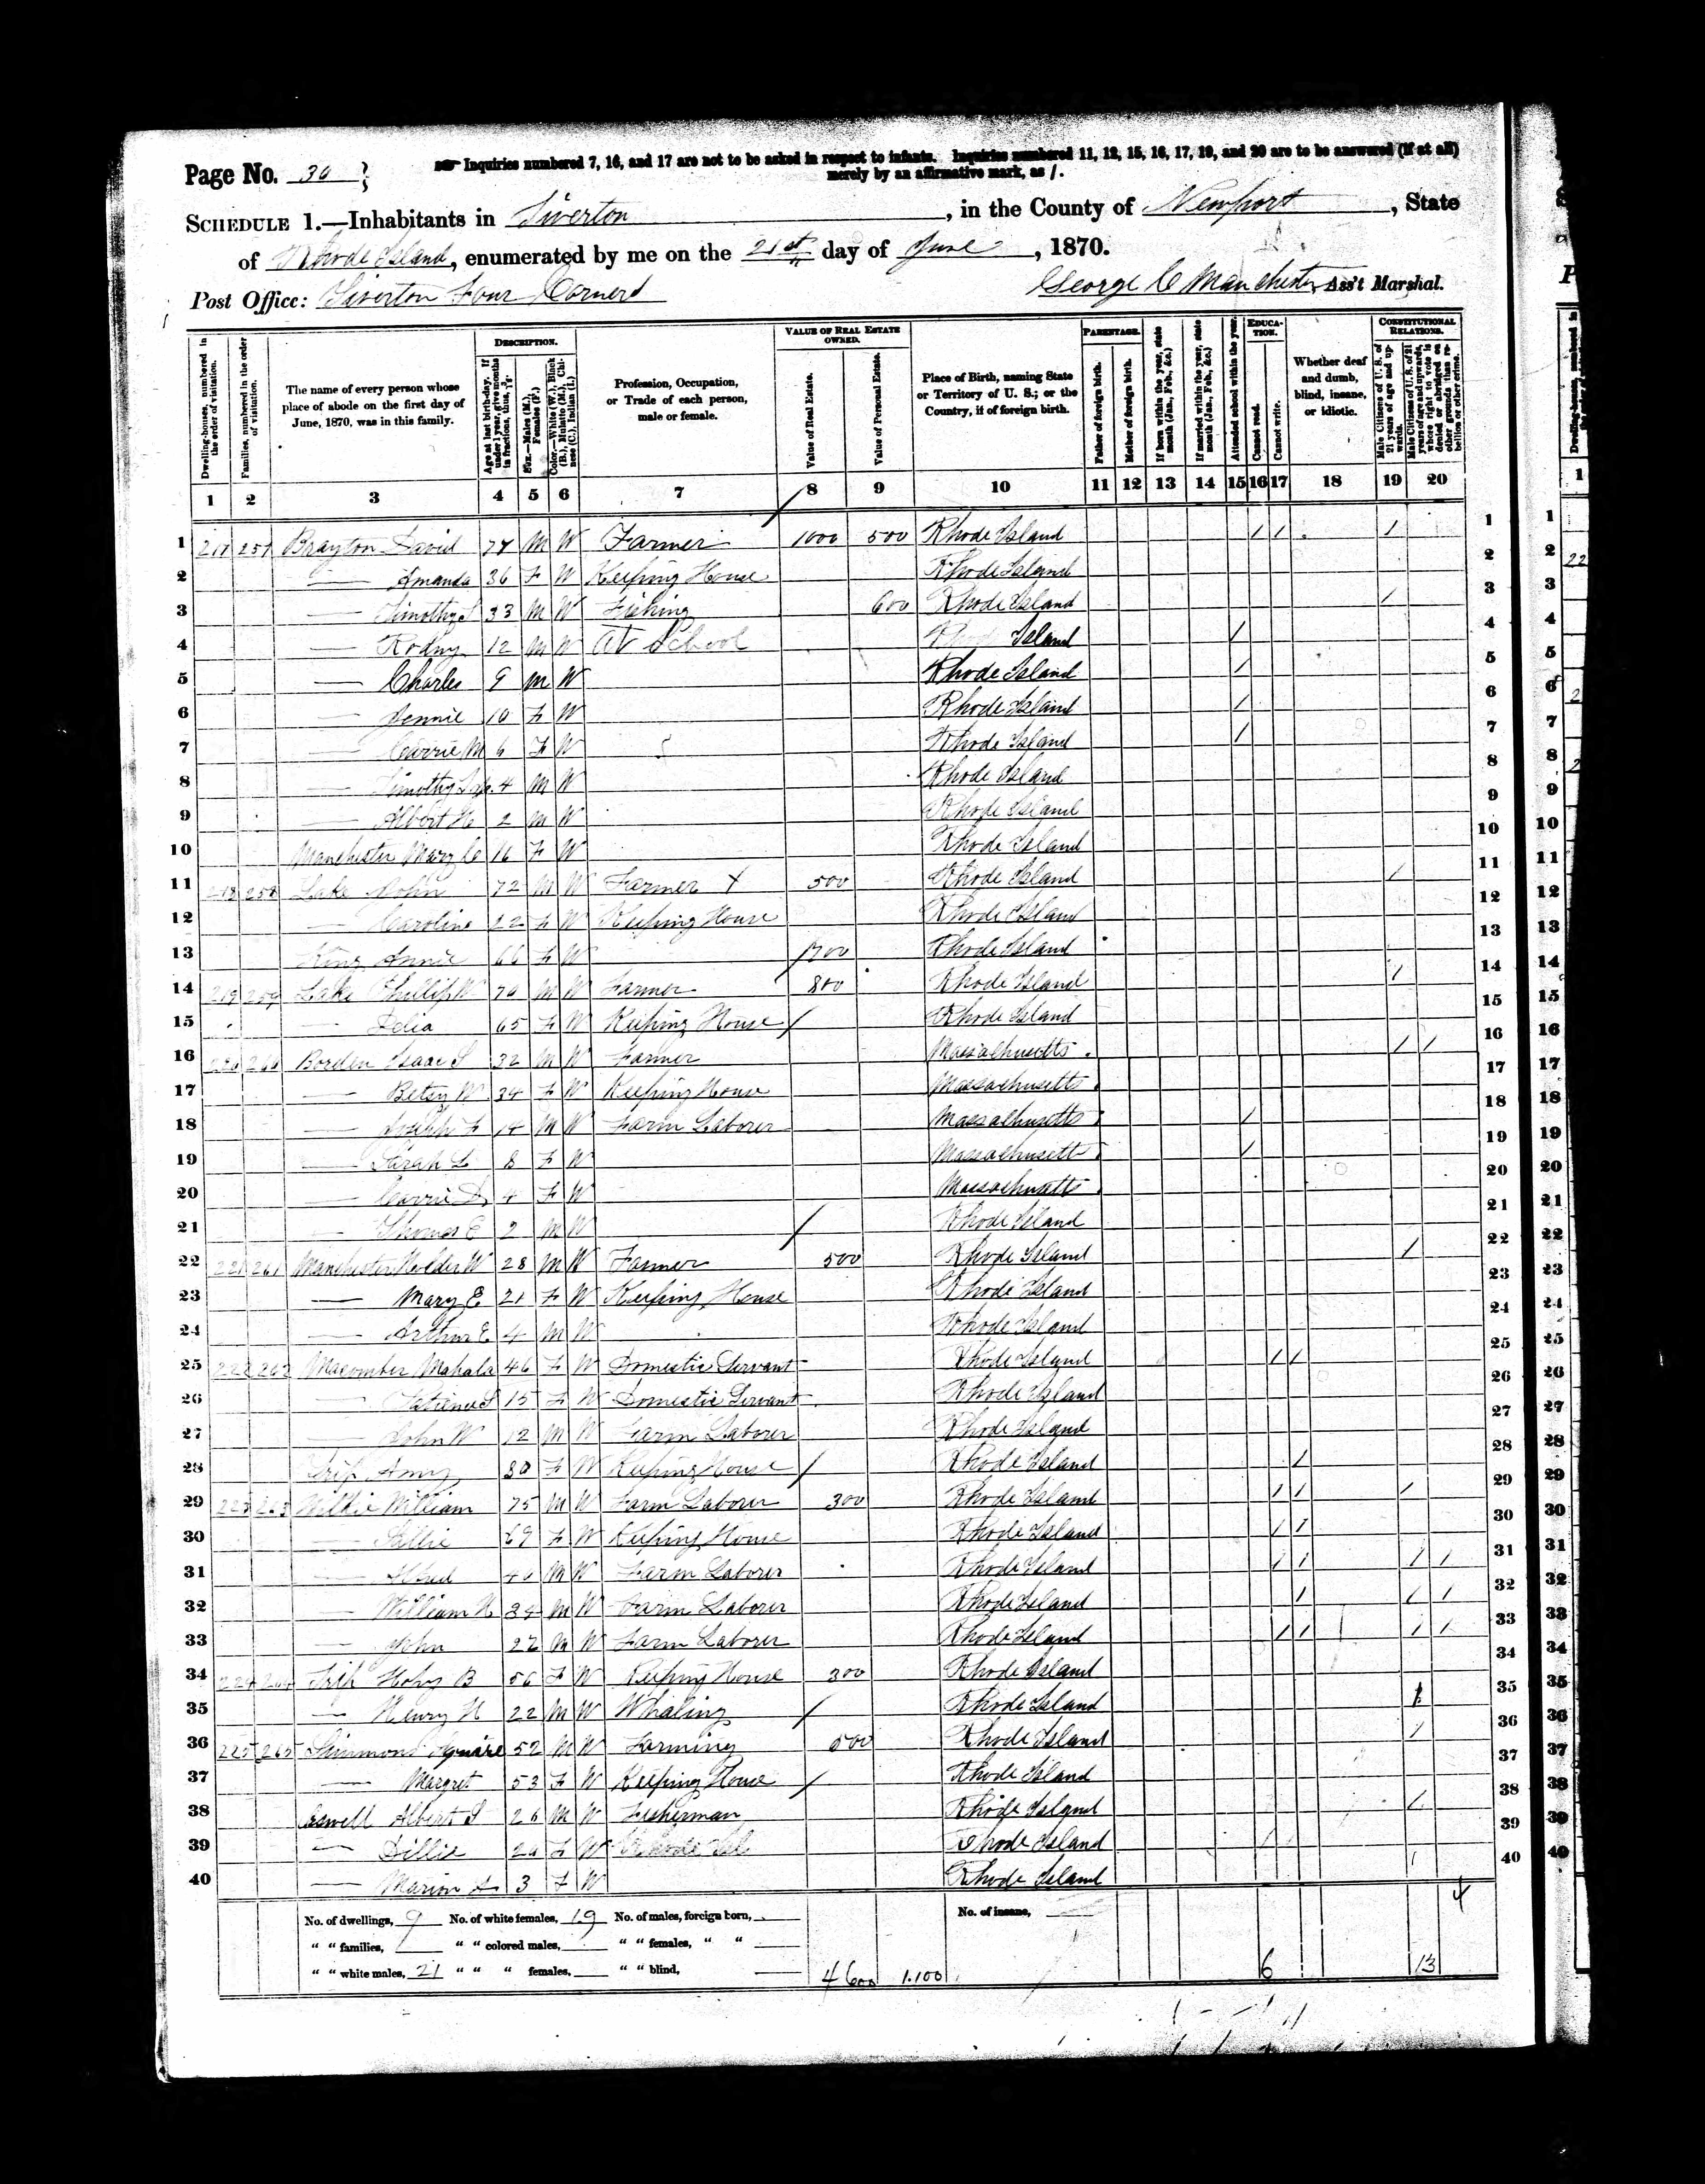 Page No. 30
Inquiries numbered 7, 16, and 17 are not to be asked in respect to infants. Inquiries numbered 11, 12, 15, 16, 17, 19, and 20 are to be answered (if at all)
merely by an affirmative mark, as /.
SCHEDULE 1.—Inhabitants in Tiverton, in the County of Newport, State
of Rhode Island, enumerated by me on the 21st day of June, 1870.
Post Office: Tiverton Four Corners
George C Manchester, Ass't Marshal.
Dwelling-houses, numbered in the order of visitation.
Families, numbered in the order of visitation.
The name of every person whose place of abode on the first day of June, 1870, was in this family.
DESCRIPTION.
Age at last birth-day. If under 1 year, give months in fractions, thus, 3/12.
Sex.—Males (M.), Females (F.)
Color.—White (W.), Black (B.), Mulatto (M.), Chinese (C.), Indian (I.)
Profession, Occupation, or Trade of each person, male or female.
VALUE OF REAL ESTATE OWNED.
Value of Real Estate.
Value of Personal Estate.
Place of Birth, naming State or Territory of U. S.; or the Country, if of foreign birth.
PARENTAGE.
Father of foreign birth.
Mother of foreign birth.
If born within the year, state month (Jan., Feb., &c.)
If married within the year, state month (Jan., Feb., &c.)
Attended school within the year.
EDUCATION.
Cannot read.
Cannot write.
Whether deaf and dumb, blind, insane, or idiotic.
CONSTITUTIONAL RELATIONS.
Male Citizens of U. S. of 21 years of age and upwards.
Male Citizens of U. S. of 21 years of age and upwards, whose right to vote is denied or abridged on other grounds than rebellion or other crime.
1 2 3 4 5 6 7 8 9 10 11 12 13 14 15 16 17 18 19 20
1 217 257 Brayton David M W Farmer 1000 500 Rhode Island / / / 1
2 — Amanda 36 F W Keeping House Rhode Island 2
3 — Timothy S 33 M W Fishing 600 Rhode Island / 3
4 — Rodny 12 M W At School Rhode Island / 4
5 — Charles 9 M W Rhode Island / 5
6 — Jennie 10 F W Rhode Island / 6
7 — Carrie M 6 F W Rhode Island / 7
8 — Timothy 4 M W Rhode Island 8
9 — Albert H 2 M W Rhode Island 9
10 Manchester Mary 16 F W Rhode Island 10
11 218 258 Lake John 72 M W Farmer 500 Rhode Island / 11
12 — Caroline F W Keeping House Rhode Island 12
13 King Annie 66 F W Rhode Island 13
14 219 259 Lake Phillip W 70 M W Farmer 800 Rhode Island / 14
15 — Delia 65 F W Keeping House Rhode Island 15
16 260 Borden Isaac S 32 M W Farmer Massachusetts / / 16
17 — Betsy W 34 F W Keeping House Massachusetts 17
18 — Joseph F M W Farm Laborer Massachusetts / 18
19 — Sarah L 8 F W Massachusetts / 19
20 — Carrie 4 F W Massachusetts 20
21 — Thomas E 2 M W Rhode Island 21
22 221 261 Manchester Holder W 28 M W Farmer 500 Rhode Island / 22
23 — Mary E 21 F W Keeping House Rhode Island 23
24 — Arthur E 4 M W Rhode Island 24
25 222 262 Macomber Mahala 46 F W Domestic Servant Rhode Island / / 25
26 — 15 F W Domestic Servant Rhode Island 26
27 — John W 12 M W Farm Laborer Rhode Island 27
28 Trip Amy 80 F W Keeping House Rhode Island / 28
29 223 263 Wilkie William 75 M W Farm Laborer 300 Rhode Island / / / 29
30 — Sallie 69 F W Keeping House Rhode Island / / 30
31 — M W Farm Laborer Rhode Island / / / / 31
32 — William H 34 M W Farm Laborer Rhode Island / / / 32
33 — John 22 M W Farm Laborer Rhode Island / / / / 33
34 224 264 Trip B 56 F W Keeping House 300 Rhode Island 34
35 — Henry H 22 M W Whaling Rhode Island / 35
36 225 265 Simmons Squire 52 M W Farming 500 Rhode Island / 36
37 — Margret 53 F W Keeping House Rhode Island 37
38 Albert S 26 M W Fisherman Rhode Island / 38
39 — Lillie F W Rhode Island 39
40 — Marion A 3 F W Rhode Island 40
No. of dwellings, 9 No. of white females, 19 No. of males, foreign born, No. of insane,
" " families, " " colored males, " " females, " "
" " white males, 21 " " " females, " " blind,
4600 1.100 6 13 4